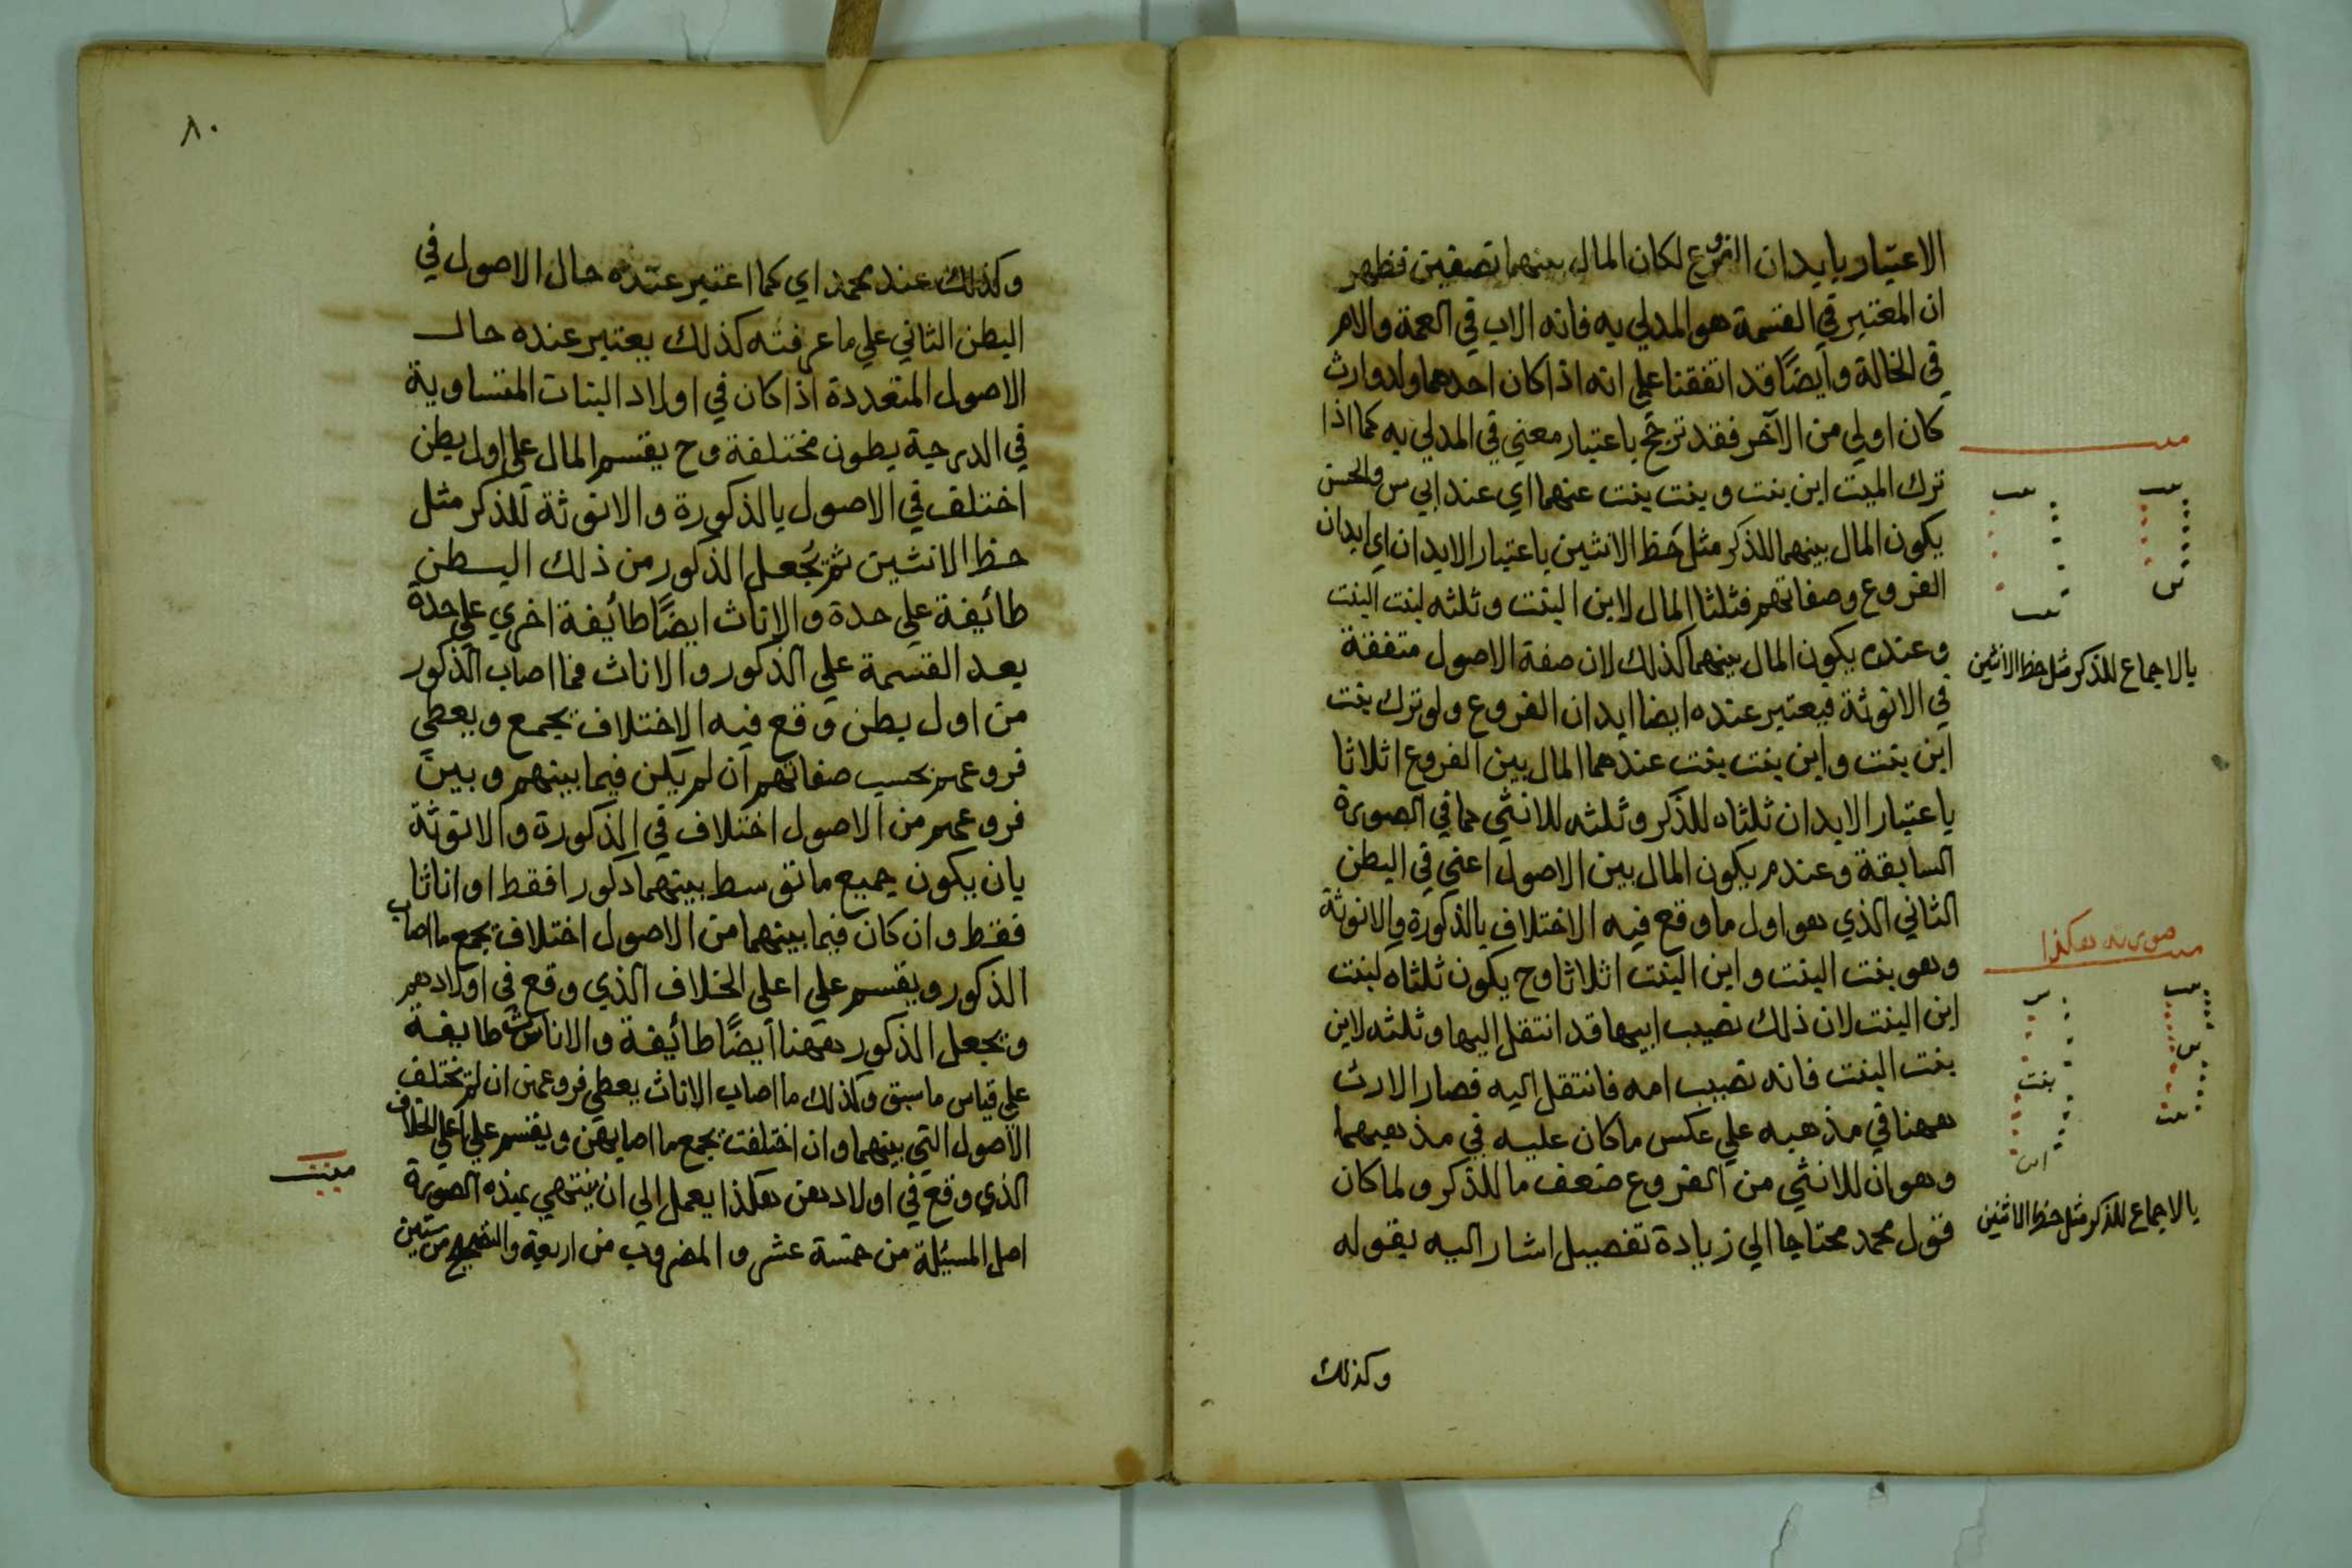 الاعتبار بابدان الفروع لكان المال بينهما نصفين فظهر
ان المعتبر في القسمة هو المدلي به فانه الاب في العمة والام
في الخالة وايضًا قد اتفقنا علي انه اذا كان احدهما ولد وارث
كان اولي من الآخر فقد ترجح باعتبار معني في المدلي به كما اذا
ترك الميت ابن بنت وبنت بنت عنهما اي عند ابي س والحسن
يكون المال بينهما للذكر مثل حظ الانثيين باعتبار الابدان اي ابدان
الفروع وصفاتهم فثلثا المال لابن البنت وثلثه لبنت البنت
وعنده يكون المال بينهما كذلك لان صفة الاصول متفقة
في الانوثة فيعتبر عنده ايضا ابدان الفروع ولو ترك بنت
ابن بنت وابن بنت بنت عندهما المال بين الفروع اثلاثا
باعتبار الابدان ثلثاه للذكر وثلثه للانثي كما في الصورة
السابقة وعندم يكون المال بين الاصول اعني في البطن
الثاني الذي هو اول ما وقع فيه الاختلاف بالذكورة والانوثة
وهو بنت البنت وابن البنت اثلاثا وح يكون ثلثاه لبنت
ابن البنت لان ذلك نصيب ابيها قد انتقل اليها وثلثه لابن
بنت البنت فانه نصيب امه فانتقل اليه فصار الارث
ههنا في مذهبه علي عكس ما كان عليه في مذهبهما
وهو ان للانثي من الفروع ضعف ما للذكر ولما كان
قول محمد محتاجا الي زيادة تفصيل اشار اليه بقوله
وكذلك
بالاجماع للذكر مثل حظ الانثيين
صورته هكذا
بنت
ابن
بالاجماع للذكر مثل حظ الانثيين
٨٠
وكذلك عند محمد اي كما اعتبر عنده حال الاصول في
البطن الثاني علي ما عرفته كذلك يعتبر عنده حال
الاصول المتعددة اذا كان في اولاد البنات المتساوية
في الدرجة بطون مختلفة وح يقسم المال علي اول بطن
اختلف في الاصول بالذكورة والانوثة للذكر مثل
حظ الانثيين ثم يُجعل الذكور من ذلك البطن
طائفة علي حدة والاناث ايضًا طائفة اخري علي حدة
بعد القسمة علي الذكور والاناث فما اصاب الذكور
من اول بطن وقع فيه الاختلاف يجمع ويعطي
فروعهم بحسب صفاتهم ان لم يكن فيما بينهم وبين
فروعهم من الاصول اختلاف في الذكورة والانوثة
بان يكون جميع ما توسط بينهما ذكورا فقط او اناثا
فقط وان كان فيما بينهما من الاصول اختلاف يجمع ما اصاب
الذكور ويقسم علي اعلي الخلاف الذي وقع في اولادهم
ويجعل الذكور ههنا ايضًا طائفة والاناث طايفة
علي قياس ما سبق وكذلك ما اصاب الاناث يعطي فروعهن ان لم تختلف
الاصول التي بينهما وان اختلفت يجمع ما اصابهن ويقسم علي اعلي الخلاف
الذي وقع في اولادهن هكذا يعمل الي ان ينتهي بهذه الصورة
اصل المسئلة من خمسة عشر والمضروب من اربعة والتصحيح من ستين
ميت